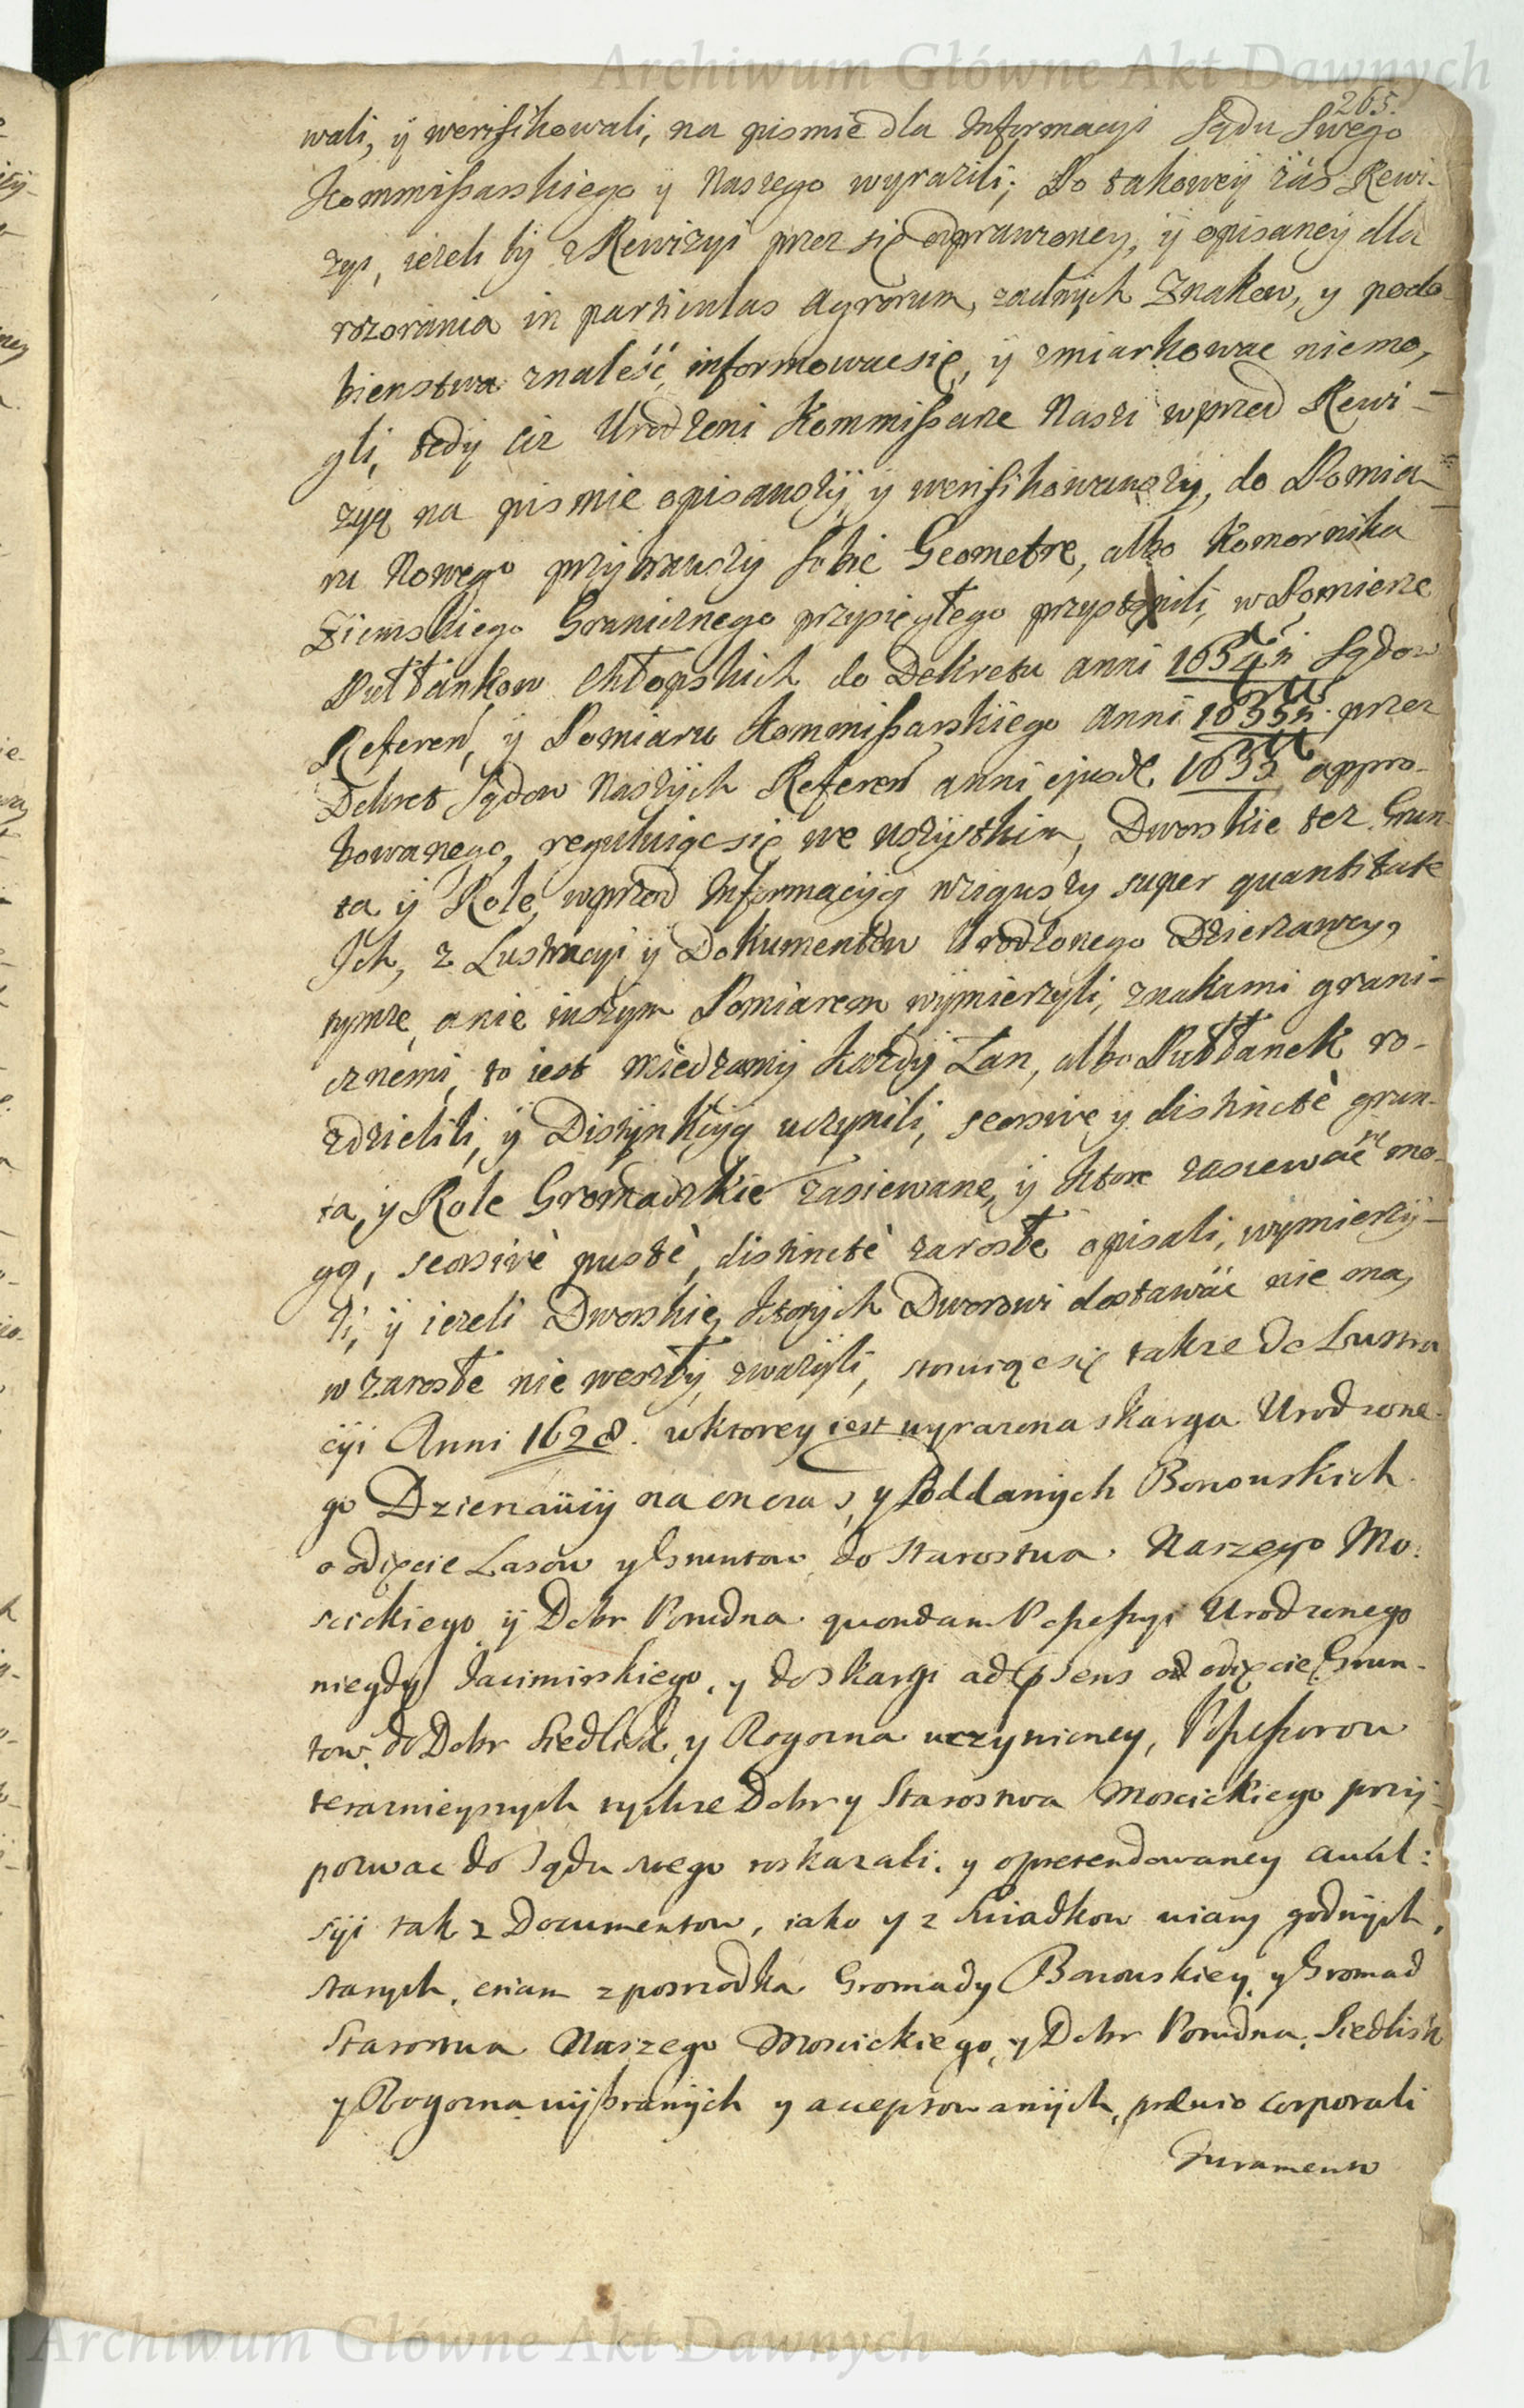 Archiwum Główne Akt Dawnych
265.
wali, ÿ werifikowali, na pismie dla Informacyi Sądu Swego
Kommißarskiego ÿ Naszego wyrazili; Do takoweÿ zás Rewi-
zyi, ieżeli bÿ z Rewizyi przez się odprawioney, ÿ opisaneÿ dla
rozorania in particulas agrorum, żadnÿch Znakow, y podo-
bienstwa znaleść, informowac się, ÿ zmiarkowac niemo,
gli, tedÿ ciż Urodzeni Kommißarze Naszi wprzod Rewi-
zyą na pismie opisawszÿ, ÿ werifikowawszÿ, do Pomia-
ru Nowego przÿbrawszÿ Sobie Geometre, albo Komornika
Ziemskiego Granicznego przÿsięgłego przystąpili, w Pomierze
Pułłankow Chłopskich do Dekretu anni 1654 Sądow
Referen, ÿ Pomiaru Kommißarskiego Anni 1655 przez
Dekret Sądow Naszÿch Referen anni ejusd. 1655 appro-
bowanego, reguluiąc się we wszÿstkim, Dworskie też Grun-
ta ÿ Role, wprzod Informacyią wziąwszy super quantitate
Ich, z Lustracyi ÿ Dokumentow Urodzonego Dzierżawcy,
tymże, a nie inszym Pomiarem wÿmierzyli, znakami grani-
cznemi, to iest miedzamÿ każdÿ Łan, albo Pułłanek ro-
zdzielili, ÿ Distÿnkcyą uczynili, seorsive y distinctè grun-
ta, y Role Gromadzkie zasiewane, ÿ ktore zasiewać się mo-
gą, seorsivè pustè, distinctè zarosłe opisali, wymierzÿ-
li, ÿ ieżeli Dworskie, ktorÿch Dworowi dostawać nie ma,
w zarosłe nie weszłÿ, zważÿli, stosuiąc się także do Lustra
cÿi Anni 1628. w ktorey iest wyrażona skarga Urodzone-
go Dzierżawcÿ na onera, y Poddanych Bonowskich
o odięcie Lasow y Gruntow do Starostwa Naszego Mo:
scickiego ÿ Dobr Porudna quondam Poßeßyi Urodzonego
niegdy Jacimirskiego, y do Skargi ad psens od odięcie Grun-
tow do Dobr Siedlisk, y Rogozna uczynioney, Poßeßorow
teraznieyszych tychże Dobr y Starostwa Moscickiego przÿ-
pozwac do Sądu swego roskazali, y o pretendowaney awul:
sÿi tak z Documentow, iako y z Swiadkow wiary godnÿch,
starych, etiam z posrzodka Gromady Bonowskiey, y Gromad
Starostwa Naszego Moscickiego, y Dobr Porudna, Siedlisk
y Rogozna wÿbranÿch y acceptowanÿch, prævio corporali
Juramento
Archiwum Główne Akt Dawnych